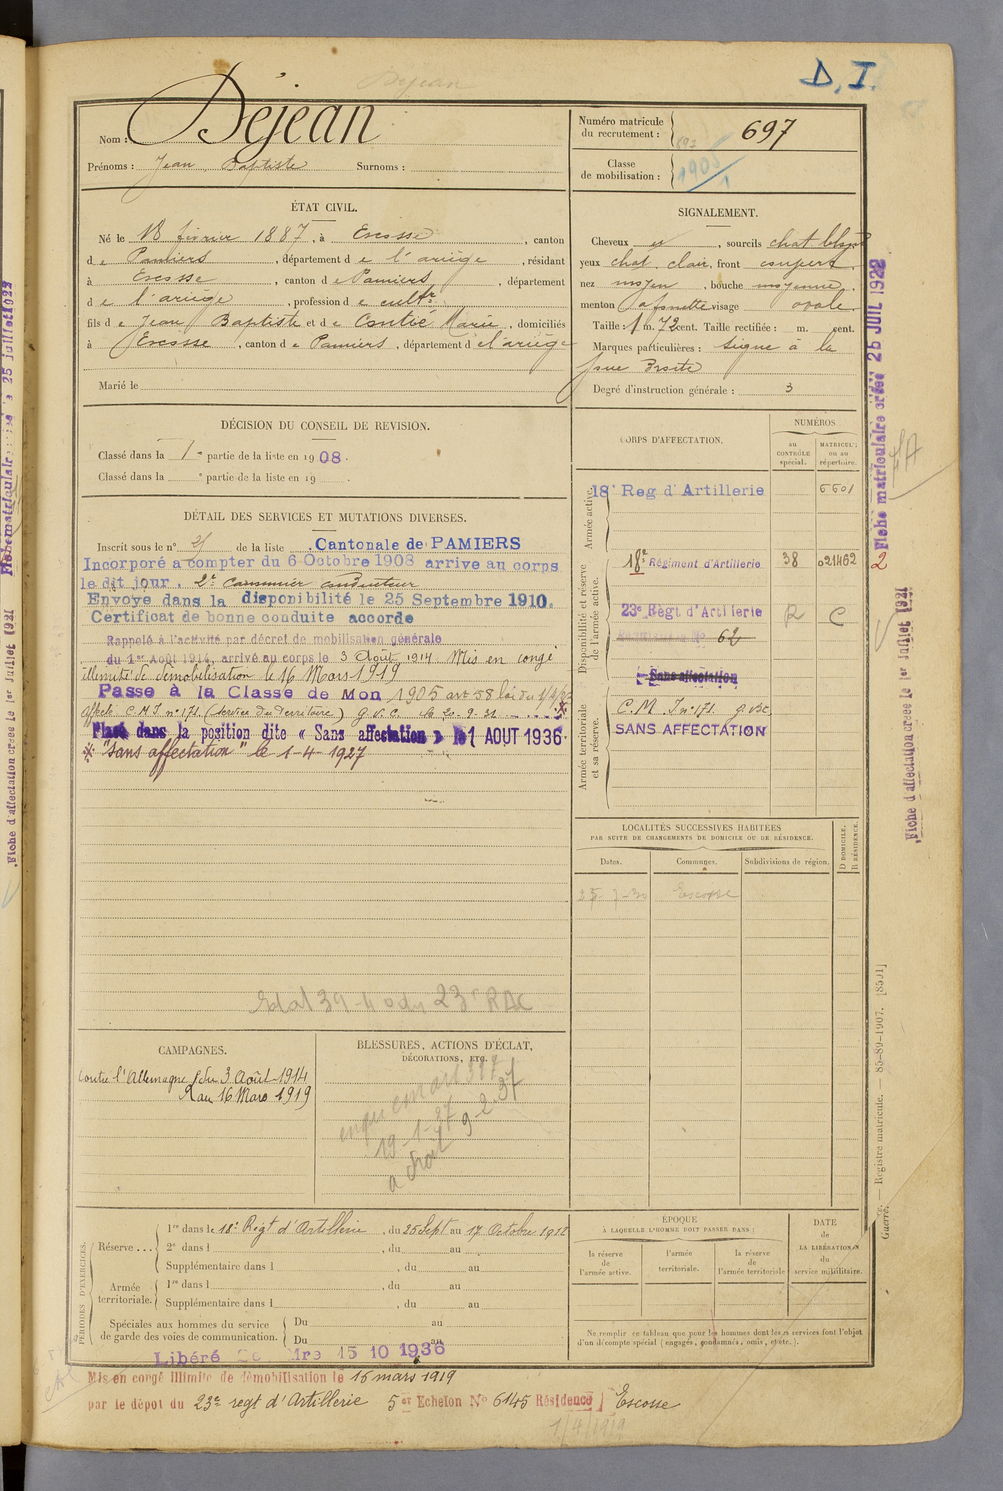 D. I.
Nom : Déjean
Prénoms : Jean Baptiste Surnoms :
Numéro matricule du recrutement : 697
Classe de mobilisation :
ÉTAT CIVIL.
Né le 18 février 1887, à Escosse, canton
de Pamiers, département de l'ariège, résidant
à Escosse, canton de Pamiers, département
de l'ariège, profession de cultr
fils de Jean Baptiste et de Marie, domiciliés
à Escosse, canton de Pamiers, département de l'ariège
Marié le
SIGNALEMENT.
Cheveux , sourcils chat
yeux chat. clair, front
nez moyen, bouche moyenne,
menton visage ovale.
Taille : 1 m. 72 cent. Taille rectifiée : m. cent.
Marques particulières : signe à la
joue Droite
Degré d'instruction générale : 3
DÉCISION DU CONSEIL DE REVISION.
Classé dans la 1e partie de la liste en 1908.
Classé dans la e partie de la liste en 19
DÉTAIL DES SERVICES ET MUTATIONS DIVERSES.
Inscrit sous le n° de la liste Cantonale de PAMIERS
Incorporé à compter du 6 Octobre 1908 arrivé au corps
le dit jour. 2e Canonnier conducteur
Envoyé dans la disponibilité le 25 Septembre 1910.
Certificat de bonne conduite accordé
Rappelé à l'activité par décret de mobilisation générale
du 1er Août 1914, arrivé au corps le 3 Août 1914 Mis en congé
illimité de démobilisation le 16 Mars 1919
Passé à la Classe de Mon 1905 art 58 loi du
affecté C.M.I. n° 171. (Service du Territoire) g.v.c. le 20-9-31
Placé dans la position dite « Sans affectation » le 1 AOUT 1936
* "Sans affectation" le 1-4-1927
23e RAC
CORPS D'AFFECTATION.
NUMÉROS
au CONTRÔLE spécial.
MATRICULE ou au répertoire.
Armée active.
18e Reg d'Artillerie
Disponibilité et réserve de l'armée active.
18e Régiment d'Artillerie 38 021462
23e Régt d'Artillerie R C
62
Sans affectation
Armée territoriale et sa réserve.
C.M. I n° 171. g.v.c.
SANS AFFECTATION
LOCALITÉS SUCCESSIVES HABITÉES
PAR SUITE DE CHANGEMENTS DE DOMICILE OU DE RÉSIDENCE.
D DOMICILE. R RÉSIDENCE.
Dates. Communes. Subdivisions de région.
Escosse
CAMPAGNES.
Contre l'Allemagne du 3 Août 1914
au 16 Mars 1919
BLESSURES, ACTIONS D'ÉCLAT,
DÉCORATIONS, ETC.
19-1-37
9-2-37
a droit
PÉRIODES D'EXERCICES.
Réserve ...
1re dans le 18e Régt d'Artillerie, du 25 Sept au 17 Octobre 1912
2e dans l , du au .
Supplémentaire dans l , du au
Armée territoriale.
1re dans l , du au
Supplémentaire dans l , du au
Spéciales aux hommes du service de garde des voies de communication.
Du au
Du au
Libéré 15 10 1936
ÉPOQUE
À LAQUELLE L'HOMME DOIT PASSER DANS :
la réserve de l'armée active.
l'armée territoriale.
la réserve de l'armée territoriale
DATE de LA LIBÉRATION du service militaire.
Ne remplir ce tableau que pour les hommes dont les services font l'objet
d'un décompte spécial (engagés, condamnés, omis, etc.).
Mis en congé illimité de démobilisation le 15 mars 1919
par le dépôt du 23e regt d'Artillerie 5e Echelon N° 6145 Résidence Escosse
1/4/1919
2 Fiche matriculaire créée 25 JUIL 1922
Fiche d'affectation créée le 1er Juillet 1921
Registre matricule. — 85-89-1907. [8501]
Guerre.
Fiche matriculaire créée 25 juillet 1922
Fiche d'affectation créée le 1er Juillet 1921